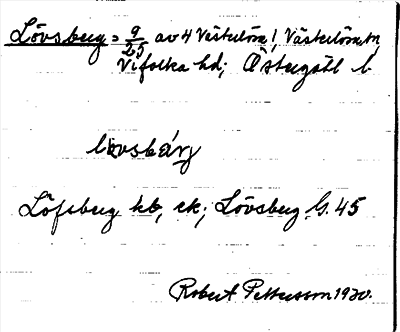 Lövsberg = 9/25 av 4 Västerlösa, Västerlösa sn
Vifolka hd; Östergötl l.
lövsbärj
Löfsberg kb, ek; Lövsberg G. 45
Robert Pettersson 1920.